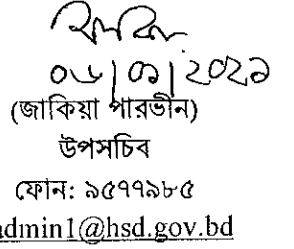 ০৬|০৯|২০২১
(জাকিয়া পারভীন)
উপসচিব
ফোন: ৯৫৭৭৯৮৫
admin1@hsd.gov.bd